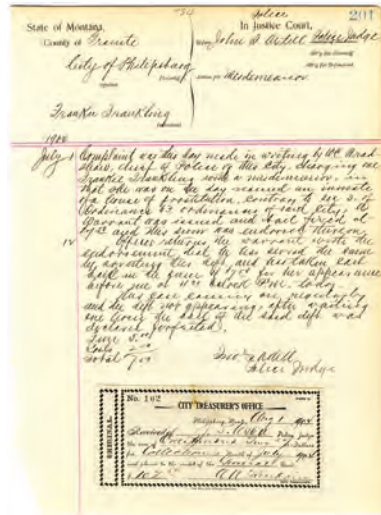 Police 201
State of Montana,
In Justice Court,
County of Granite
Before John S. Police Judge
City of Philipsburg
Plaintiff
Misdemeanor
Frankie Frankling
Defendant
1904
July 1 Complaint was this day made in writing by
chief of Police of this City, charging one
Frankie Frankling with a misdemeanor, in
that she was on the day named an inmate
of a house of prostitution, contrary to sec 3 of
Ordinance 43 ordinances of said City. A
Warrant was issued and bail fixed at
and this sum was endorsed thereon
12 Officer returns the warrant with the
endorsement that he has served the same
by arresting the deft. and has taken cash
bail in the sum of for her appearance
before me at o'clock P.M. today.
This case coming on regularly
and the deft not appearing, after waiting
one hour the bail of the said deft was
declared forfeited.
Fine 5.00
Costs 2.00
Total 7.00
Police Judge
No. 102
ORIGINAL
CITY TREASURER'S OFFICE
Philipsburg, Mont., Aug 1 1904
Received of Police Judge
the sum of One Hundred Two Dollars
for Collections Month of July 1904
and placed to the credit of the General Fund
$ 102